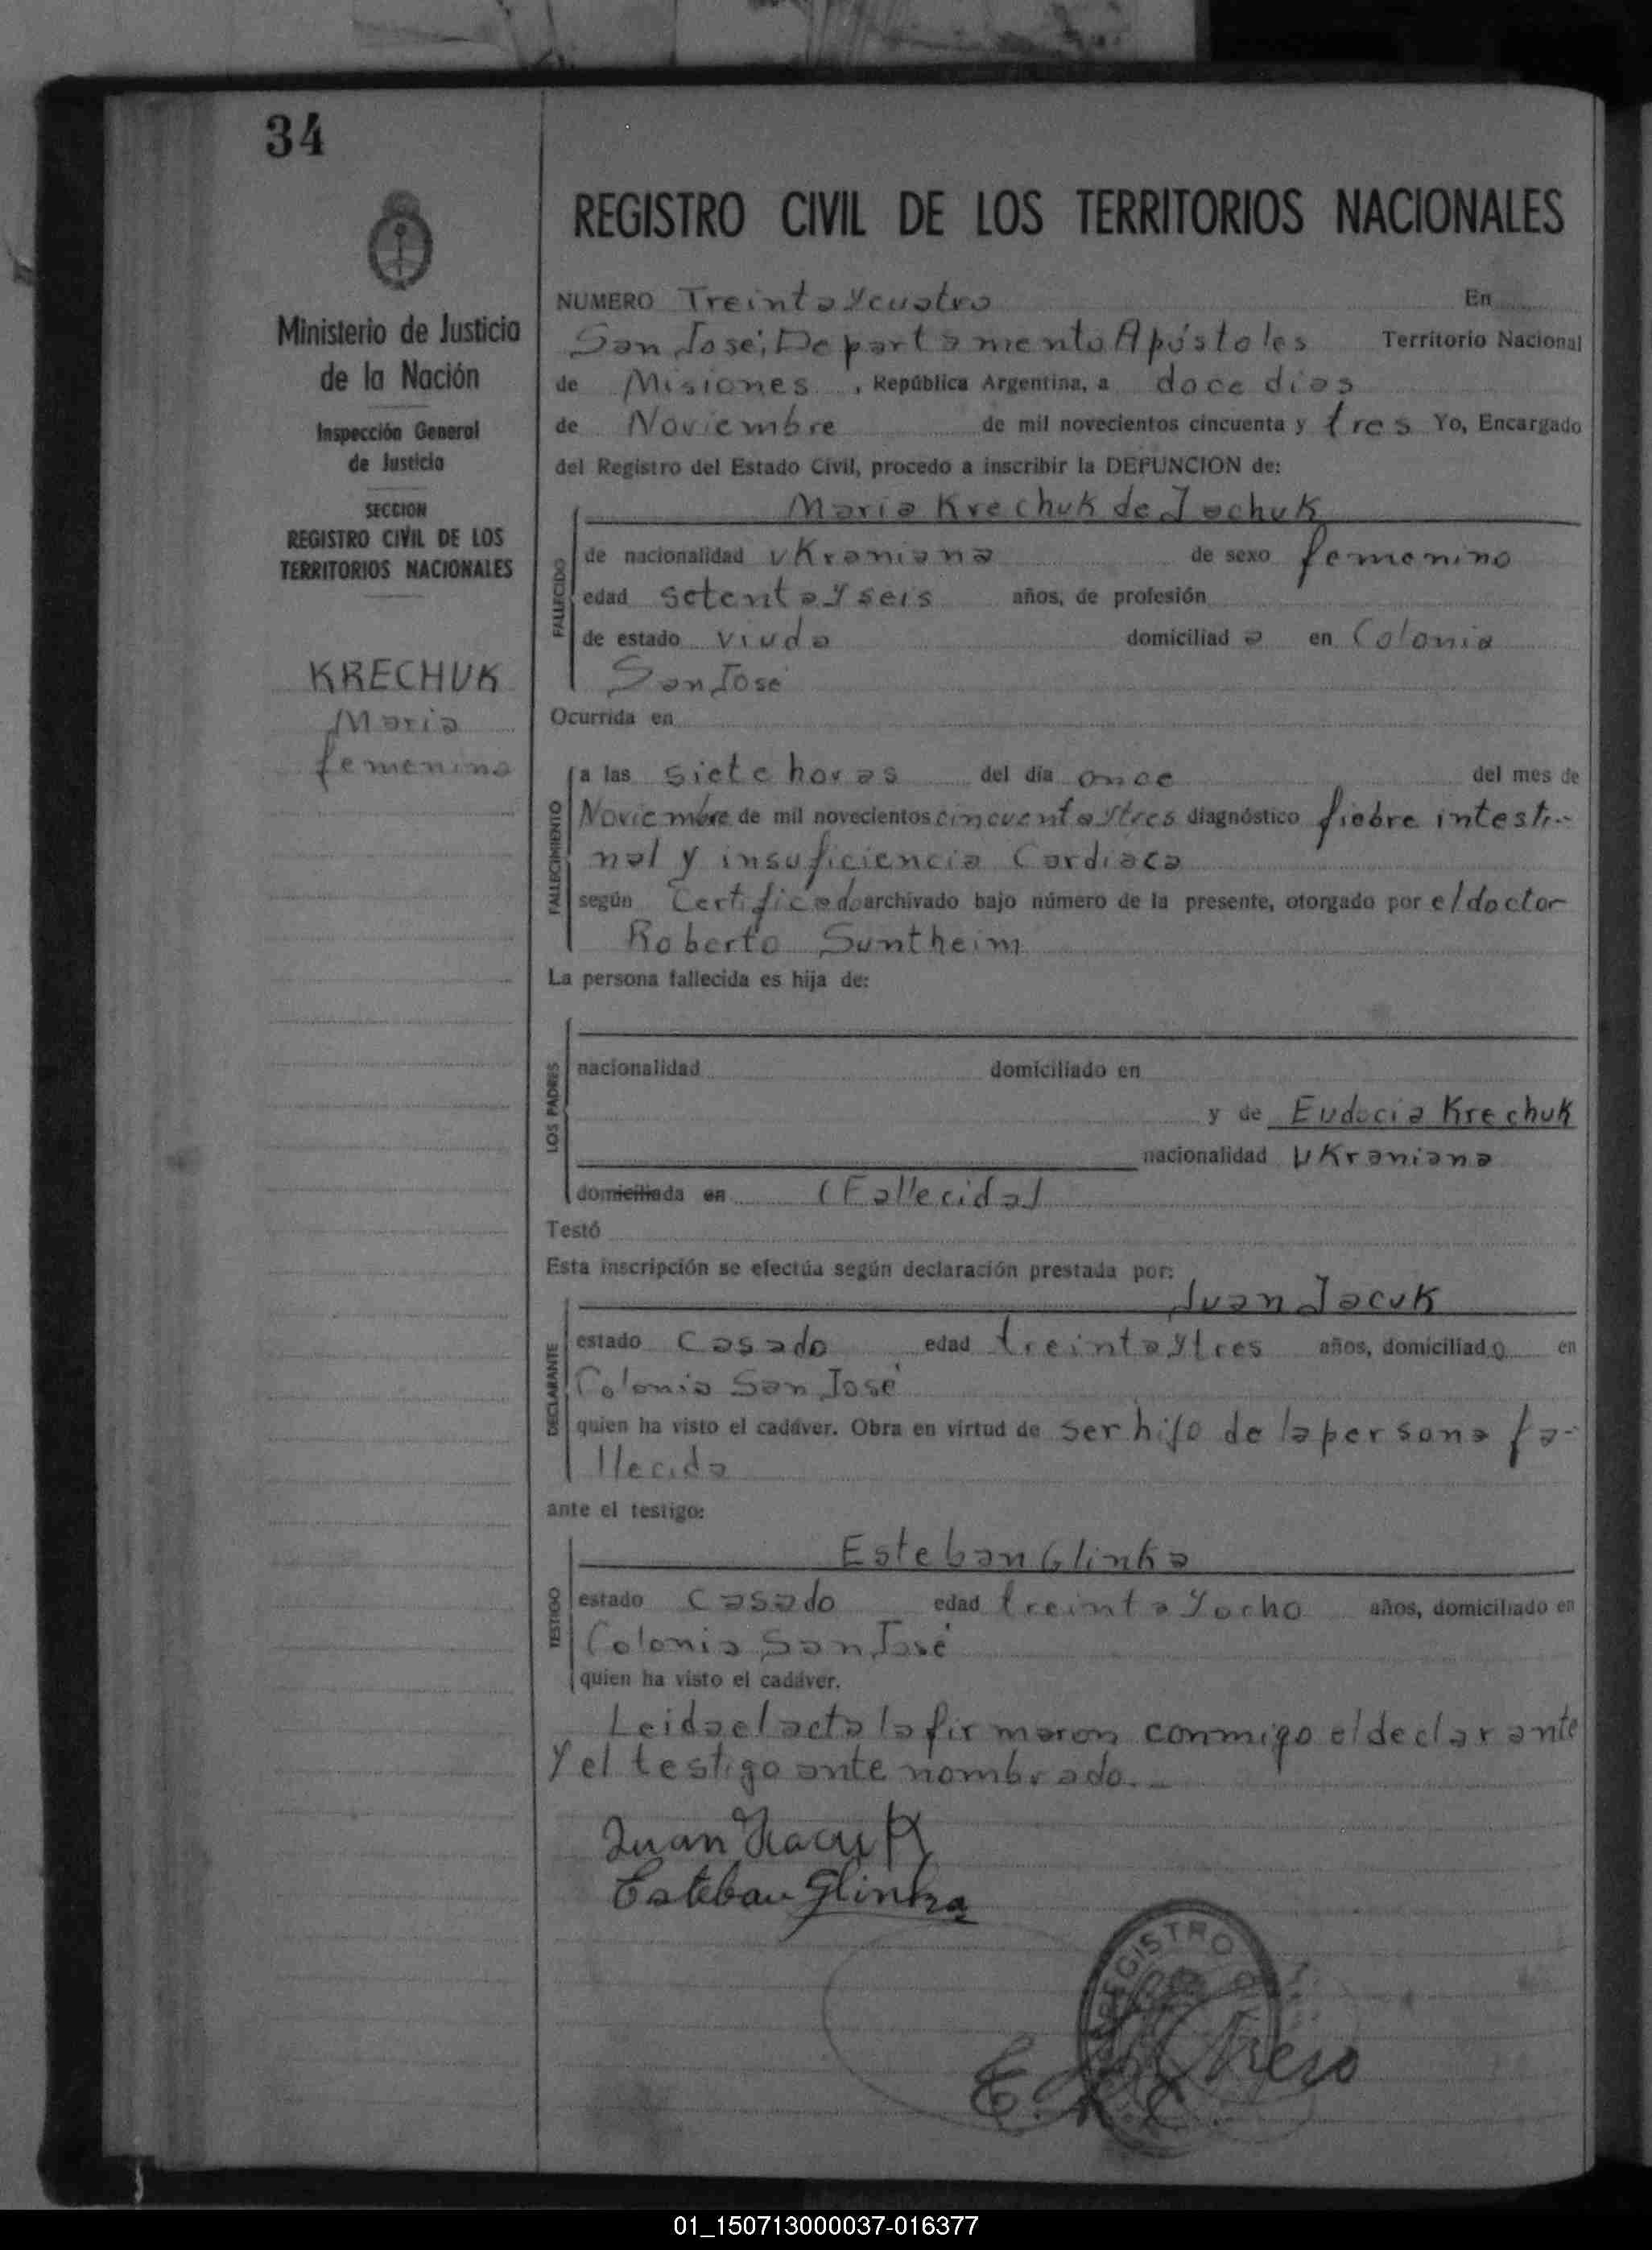 34
REGISTRO CIVIL DE LOS TERRITORIOS NACIONALES
Ministerio de Justicia
de la Nación
Inspección General
de Justicia
SECCION
REGISTRO CIVIL DE LOS
TERRITORIOS NACIONALES
KRECHUK
Maria
femenino
NUMERO Treinta y cuatro En
San José; Departamento Apóstoles Territorio Nacional
de Misiones, República Argentina, a doce dias
de Noviembre de mil novecientos cincuenta y tres Yo, Encargado
del Registro del Estado Civil, procedo a inscribir la DEFUNCION de:
FALLECIDO
Maria Krechuk de Jachuk
de nacionalidad ukraniana de sexo femenino
edad setenta y seis años, de profesión
de estado viuda domiciliad a en Colonia
San José
Ocurrida en
FALLECIMIENTO
a las siete horas del día once del mes de
Noviembre de mil novecientos cincuenta y tres diagnóstico fiebre intesti-
nal y insuficiencia Cardiaca
según Certificado archivado bajo número de la presente, otorgado por el doctor
Roberto Suntheim
La persona fallecida es hija de:
LOS PADRES
nacionalidad domiciliado en
y de Eudocia Krechuk
nacionalidad Ukraniana
domiciliada en (Fallecida)
Testó
Esta inscripción se efectúa según declaración prestada por:
DECLARANTE
Juan Jacuk
estado Casado edad treinta y tres años, domiciliad o en
Colonia San José
quien ha visto el cadáver. Obra en virtud de ser hijo de la persona fa-
llecida
ante el testigo:
TESTIGO
Esteban Glinka
estado Casado edad treinta y ocho años, domiciliado en
Colonia San José
quien ha visto el cadáver.
Leida el acta la firmaron conmigo el declarante
y el testigo ante nombrado.-
Juan Jacuk
Esteban Glinka
REGISTRO
01_150713000037-016377